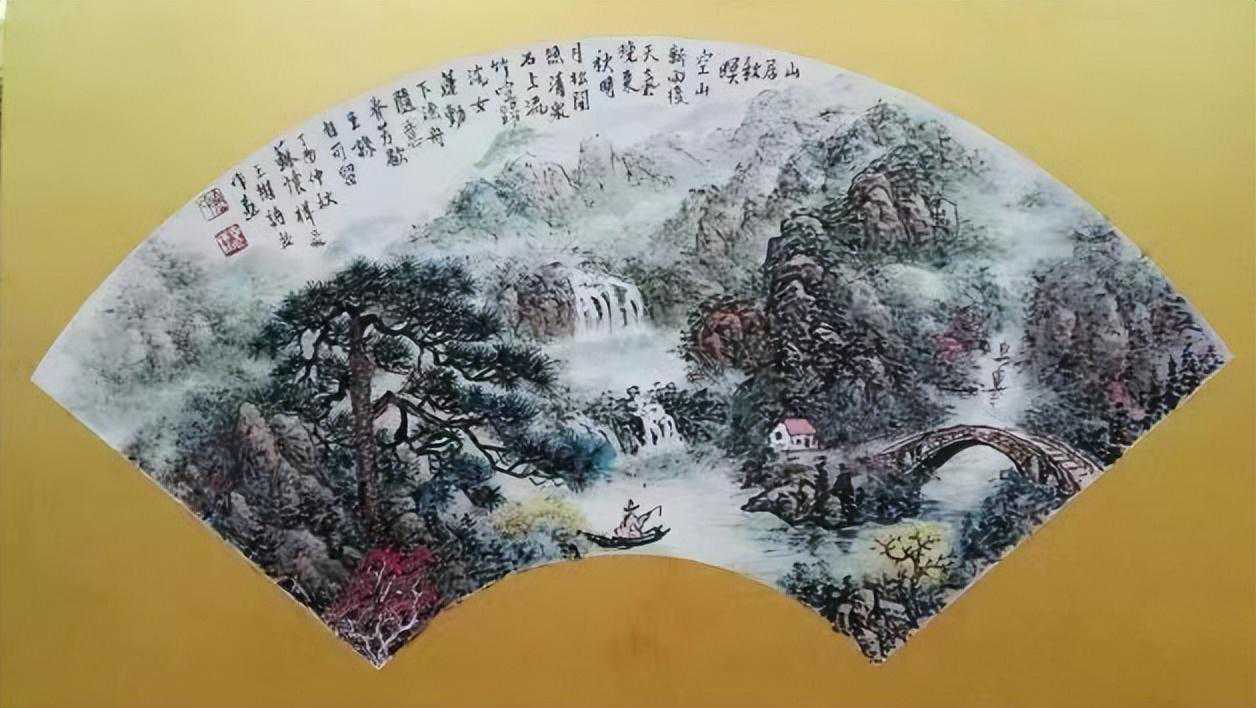 山居秋暝
空山
新雨後
天氣
晚來
秋明
月松間
照清泉
石上流
竹喧歸
浣女
蓮動
下漁舟
隨意
春芳歇
王孫
自可留
丁酉仲秋
蘇懷祥
王維詩意
作畫